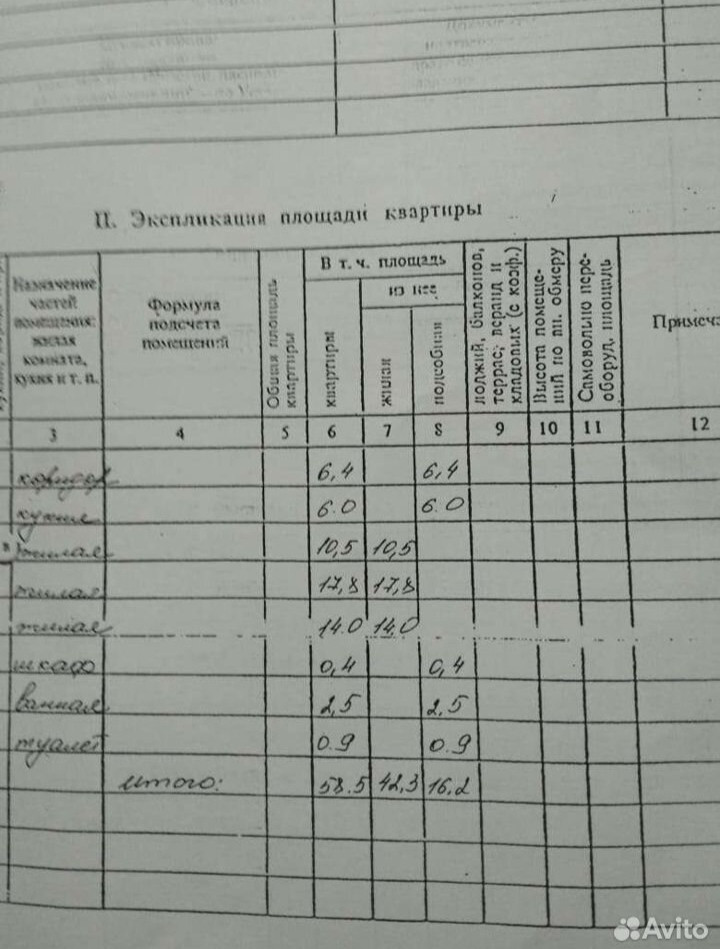 II. Экспликация площади квартиры
Назначение частей помещения: жилая комната, кухня и т. п.
Формула подсчета помещений
Общая площадь квартиры
В т. ч. площадь
из нее
квартиры
жилая
подсобная
лоджий, балконов, террас, веранд и кладовых (с коэф.)
Высота помещений по вн. обмеру
Самовольно переоборуд. площадь
Примеча
3 4 5 6 7 8 9 10 11 12
коридор 6,4 6,4
кухня 6.0 6.0
жилая 10,5 10,5
жилая 17,8 17,8
жилая 14.0 14.0
шкаф 0,4 0,4
ванная 2,5 2.5
туалет 0.9 0.9
итого: 58.5 42,3 16.2
Avito